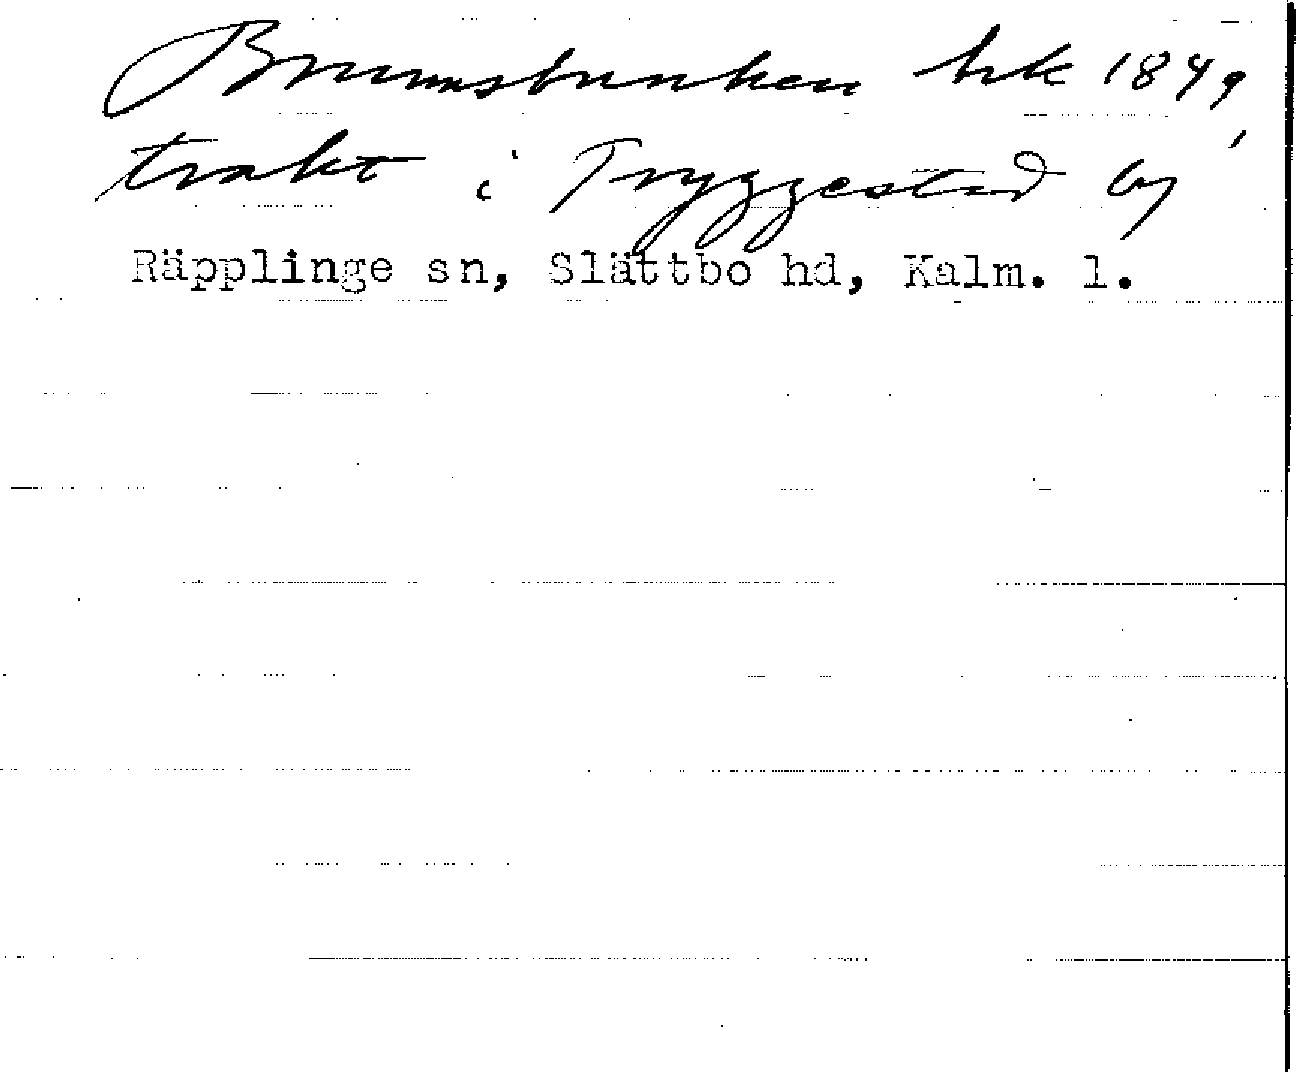 Brunnsbunken hrk 1849,
trakt i Tryggestad by
Räpplinge sn, Slättbo hd, Kalm. l.